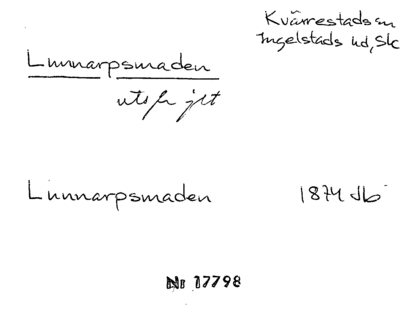 Kvärrestads sn
Ingelstads hd, Sk
Linnarpsmaden
Linnarpsmaden 1874 Jb
Nr 17798